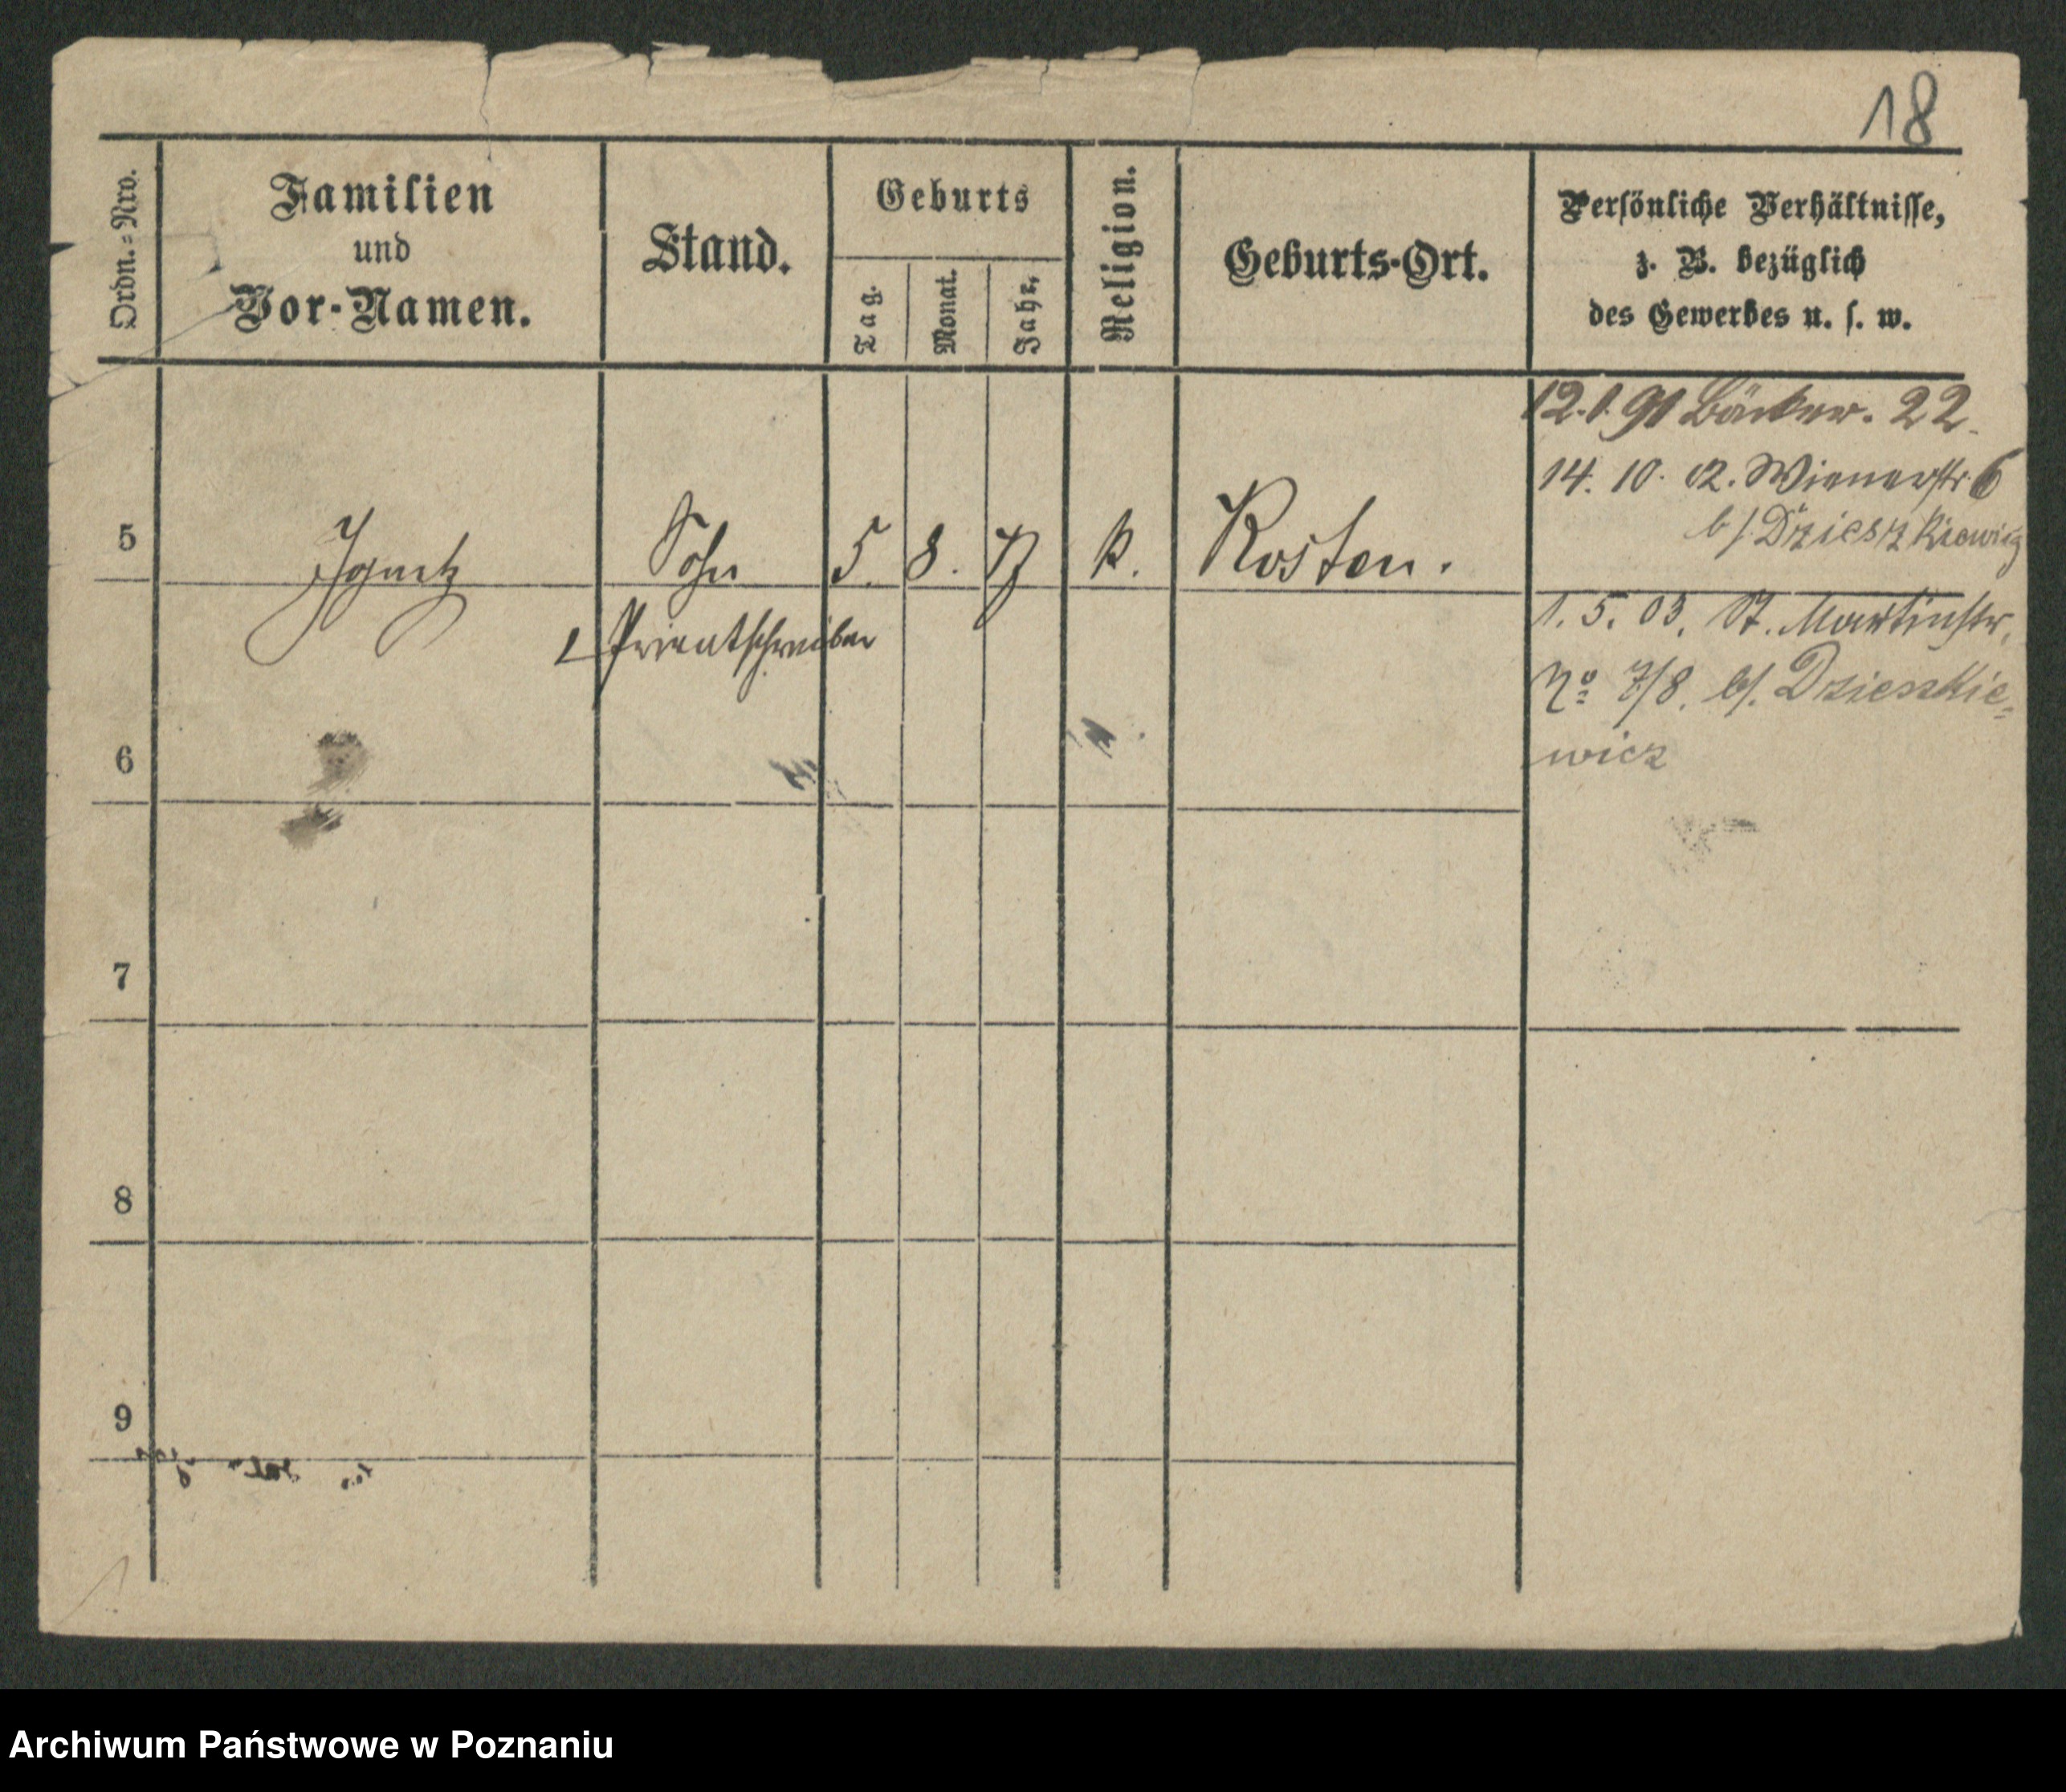 18
Ordn.=Nro.
Familien
und
Vor-Namen.
Stand.
Geburts
Tag.
Monat.
Jahr,
Religion.
Geburts-Ort.
Persönliche Verhältnisse,
z. B. bezüglich
des Gewerbes u. s. w.
12.1.91 Bäcker. 22.
14. 10. 02. Wienerstr. 6
b/. Dzieszkiewicz
5 Ignatz Sohn 5. 8. k. Kosten.
Privatschreiber
1. 5. 03. St. Martinstr.
No 7/8. b/. Dzieszkie=
wicz
6
7
8
9
Archiwum Państwowe w Poznaniu